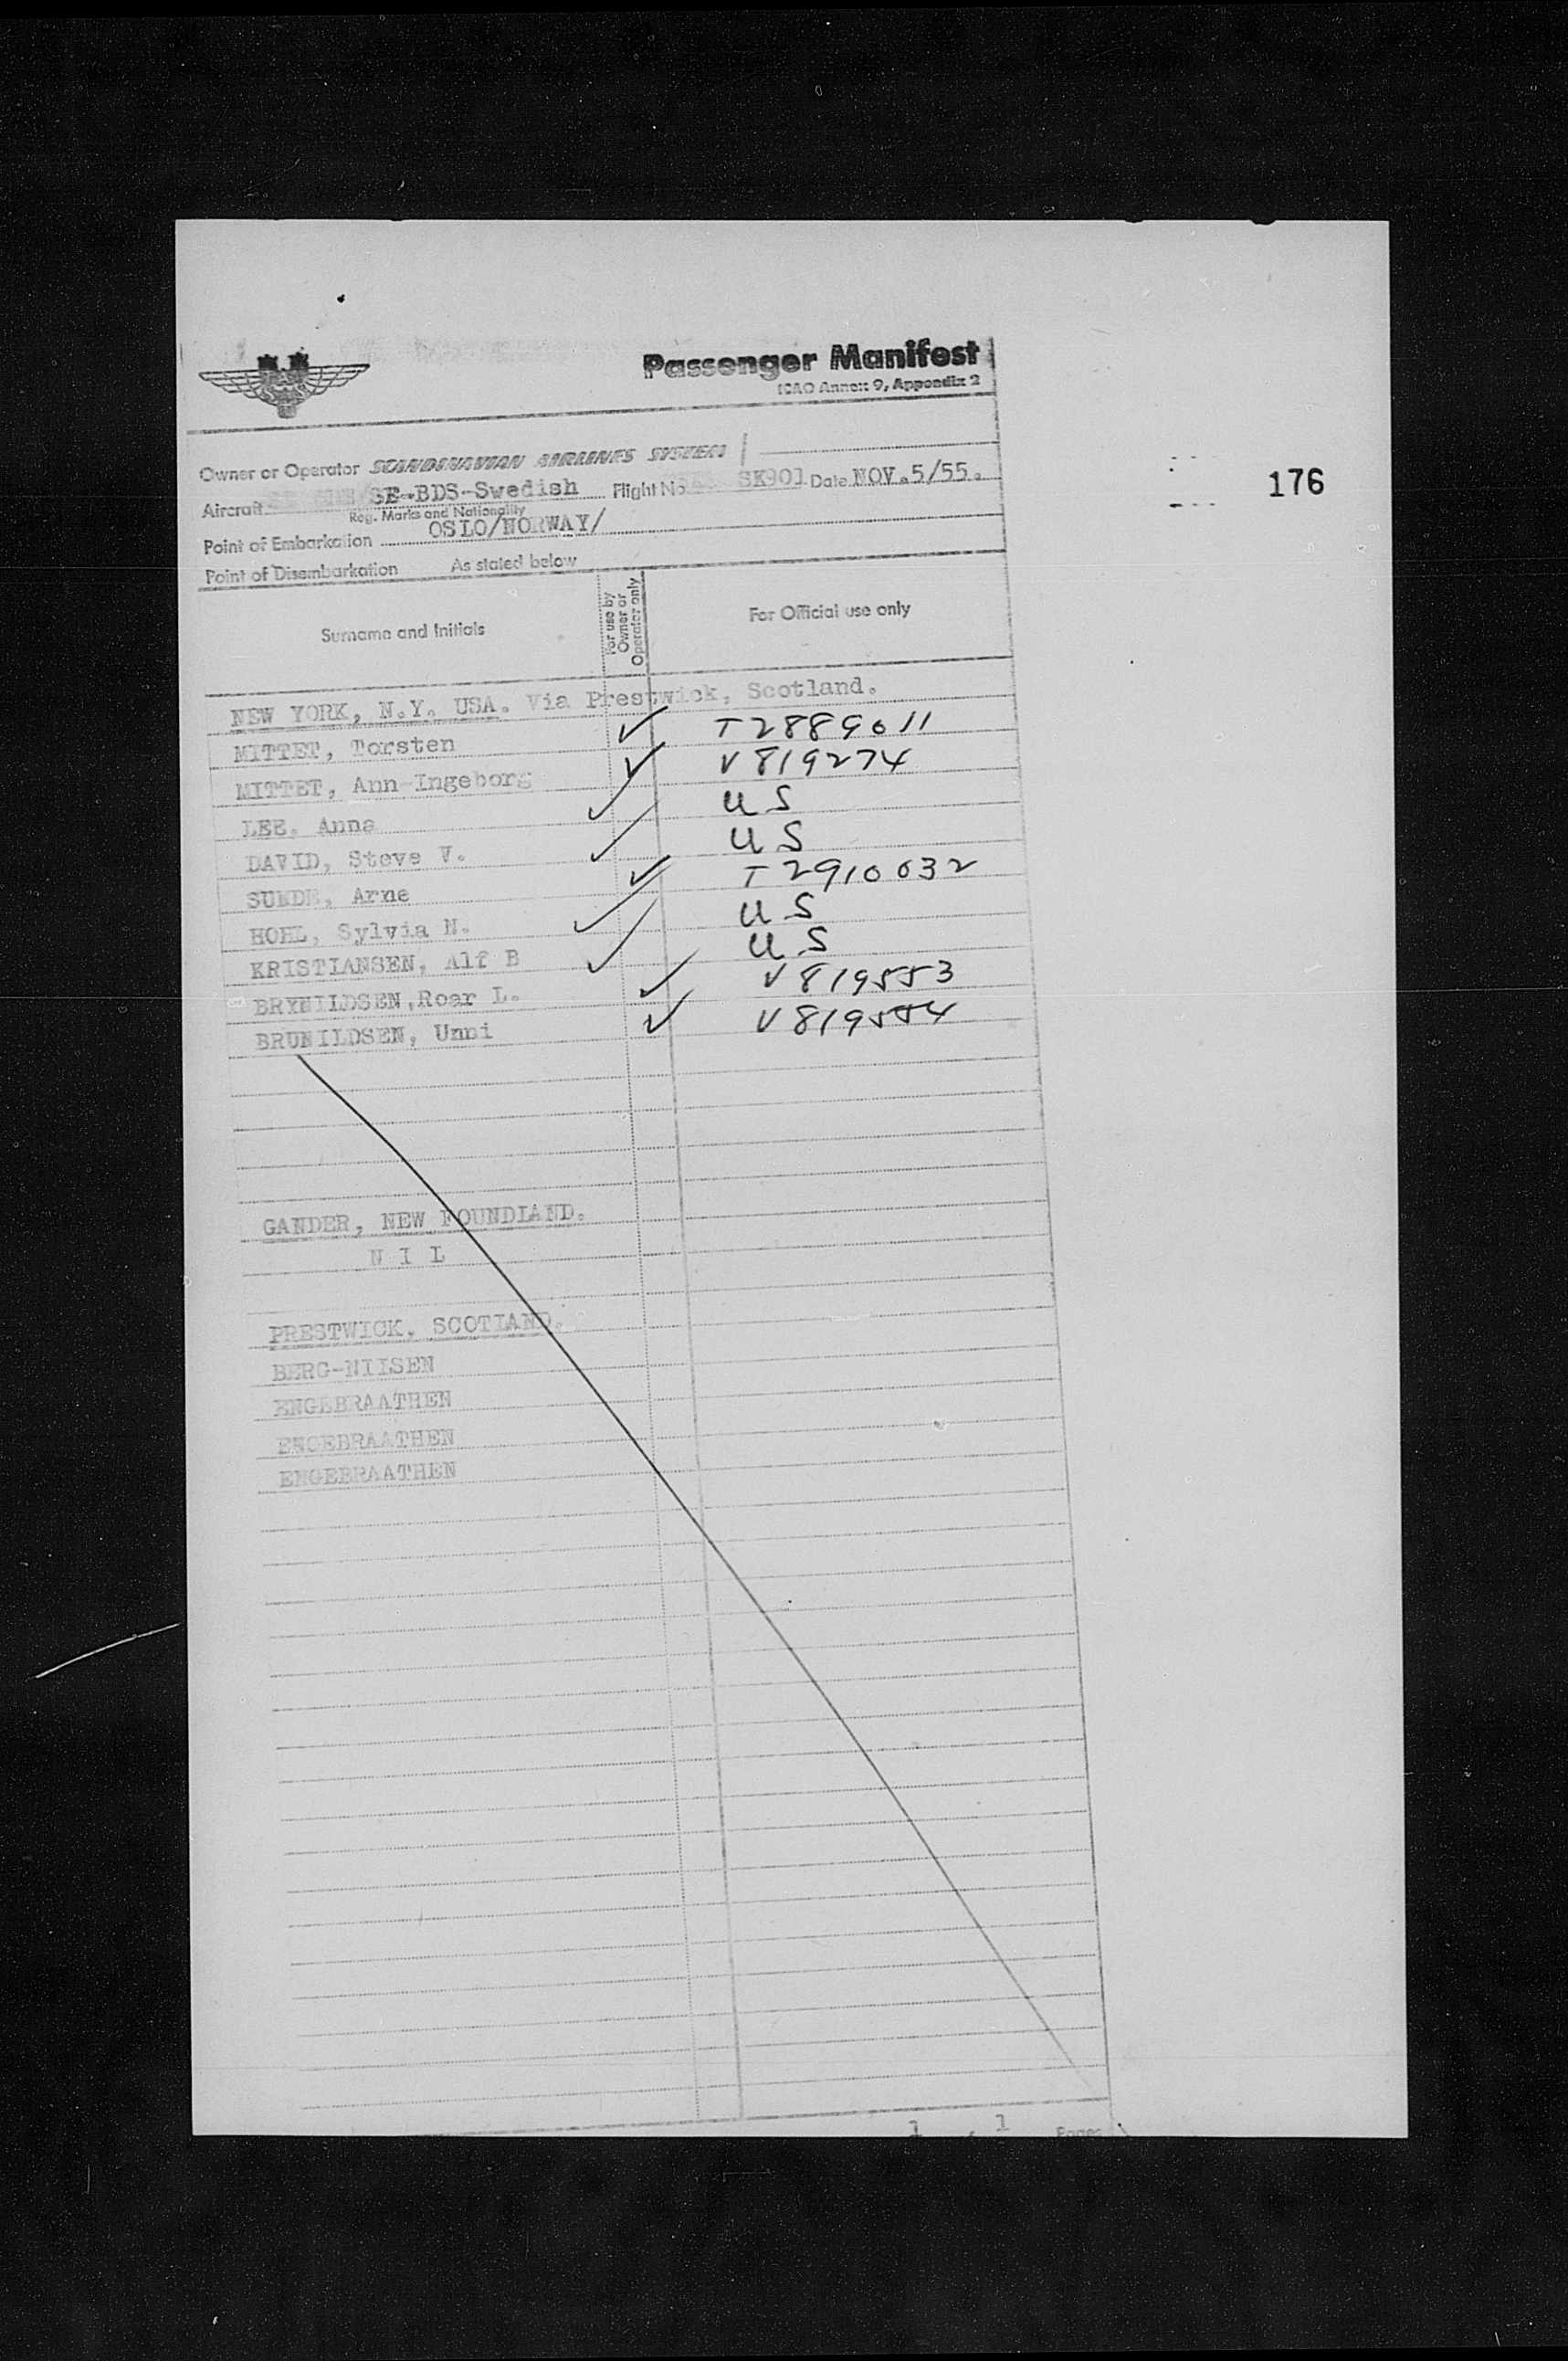 Passenger Manifest
ICAO Annex 9, Appendix 2
Owner or Operator SCANDINAVIAN AIRLINES SYSTEM
176
Aircraft SE-BDS-Swedish Flight No SK901 Date NOV.5/55.
Reg. Marks and Nationality
Point of Embarkation OSLO/NORWAY/
Point of Disembarkation As stated below
Surname and Initials For use by Owner or Operator only For Official use only
NEW YORK, N.Y. USA. Via Prestwick, Scotland.
MITTET, Torsten ✓ T2889011
MITTET, Ann-Ingeborg ✓ V819274
LEE. Anna ✓ US
DAVID, Steve V. ✓ US
SUNDE, Arne ✓ T2910032
HOHL, Sylvia N. ✓ US
KRISTIANSEN, Alf B ✓ US
BRYNILDSEN,Roar L. ✓ V819553
BRUNILDSEN, Unni ✓ V819554
GANDER, NEW FOUNDLAND.
N I L
PRESTWICK, SCOTLAND.
BERG-NIISEN
ENGEBRAATHEN
ENGEBRAATHEN
ENGEBRAATHEN
1 1 Pages